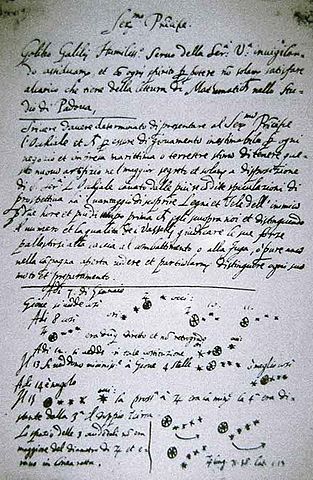 Ser.mo Principe.
Galileo Galilei Humiliss.o Servo della Ser.a V.a invigilan-
do assiduamente, et con ogni spirito per potere non solam.te satisfare
al carico che tiene della lettura di Matematica nello Stu-
dio di Padova,
Scrivere d'havere determinato di presentare al Ser.mo Principe
l'Occhiale et per essere di giovamento inestimabile per ogni
negozio et impresa marittima o terrestre stimo di tenere que-
sto nuovo artifizio nel maggior segreto et solam.te a disposizione
di S. Ser.a L'Occhiale cavato dalle più recondite speculazioni di
prospettiva ha il vantaggio di scoprire Legni et Vele dell'inimico
per due hore et più di tempo prima ch'egli scuopra noi et distinguendo
il numero et la qualità de i Vasselli giudicare le sue forze
per allestirsi alla caccia al combattimento o alla fuga, o pure anco
nella campagna aperta vedere et particolarm.te distinguere ogni suo
moto et preparamento.
Adì 7 di Gennaio
Giove si vedde così
Adì 8 così
era diretto et non retrogrado
Adì 12 si vedde in tale costituzione
Il 13 si veddero à Giove 4 stelle
Adì 14 è nugolo
Il 15 la
Lo spazio delle 3 non era
maggiore del diametro di et e-
rano in linea retta.